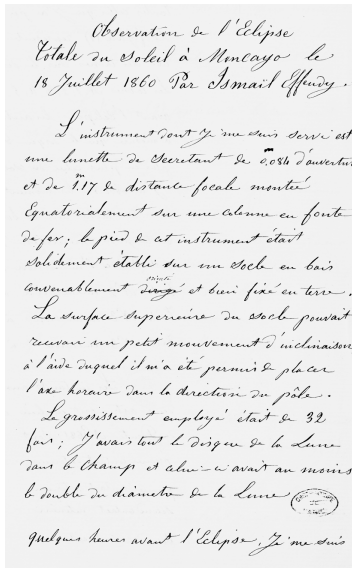 Observation de l'Eclipse
Totale du Soleil à Moncayo le
18 Juillet 1860 Par Ismaïl Effendy.
L'instrument dont Je me suis servi est
une lunette de Secretant de 0,m084 d'ouverture
et de 1,m17 de distance focale montée
Equatorialement sur une colonne en fonte
de fer; le pied de cet instrument était
solidement établi sur un socle en bois
convenablement dirigé et bien fixé en terre.
La surface superieure du socle pouvait
recevoir un petit mouvement d'inclinaison
à l'aide duquel il m'a été permis de placer
l'axe horaire dans la direction du pôle.
Le grossissement employé était de 32
fois; J'avais tout le disque de la Lune
dans le champ et celui-ci avait au moins
le double du diametre de la Lune
quelques heures avant l'Eclipse, Je me suis